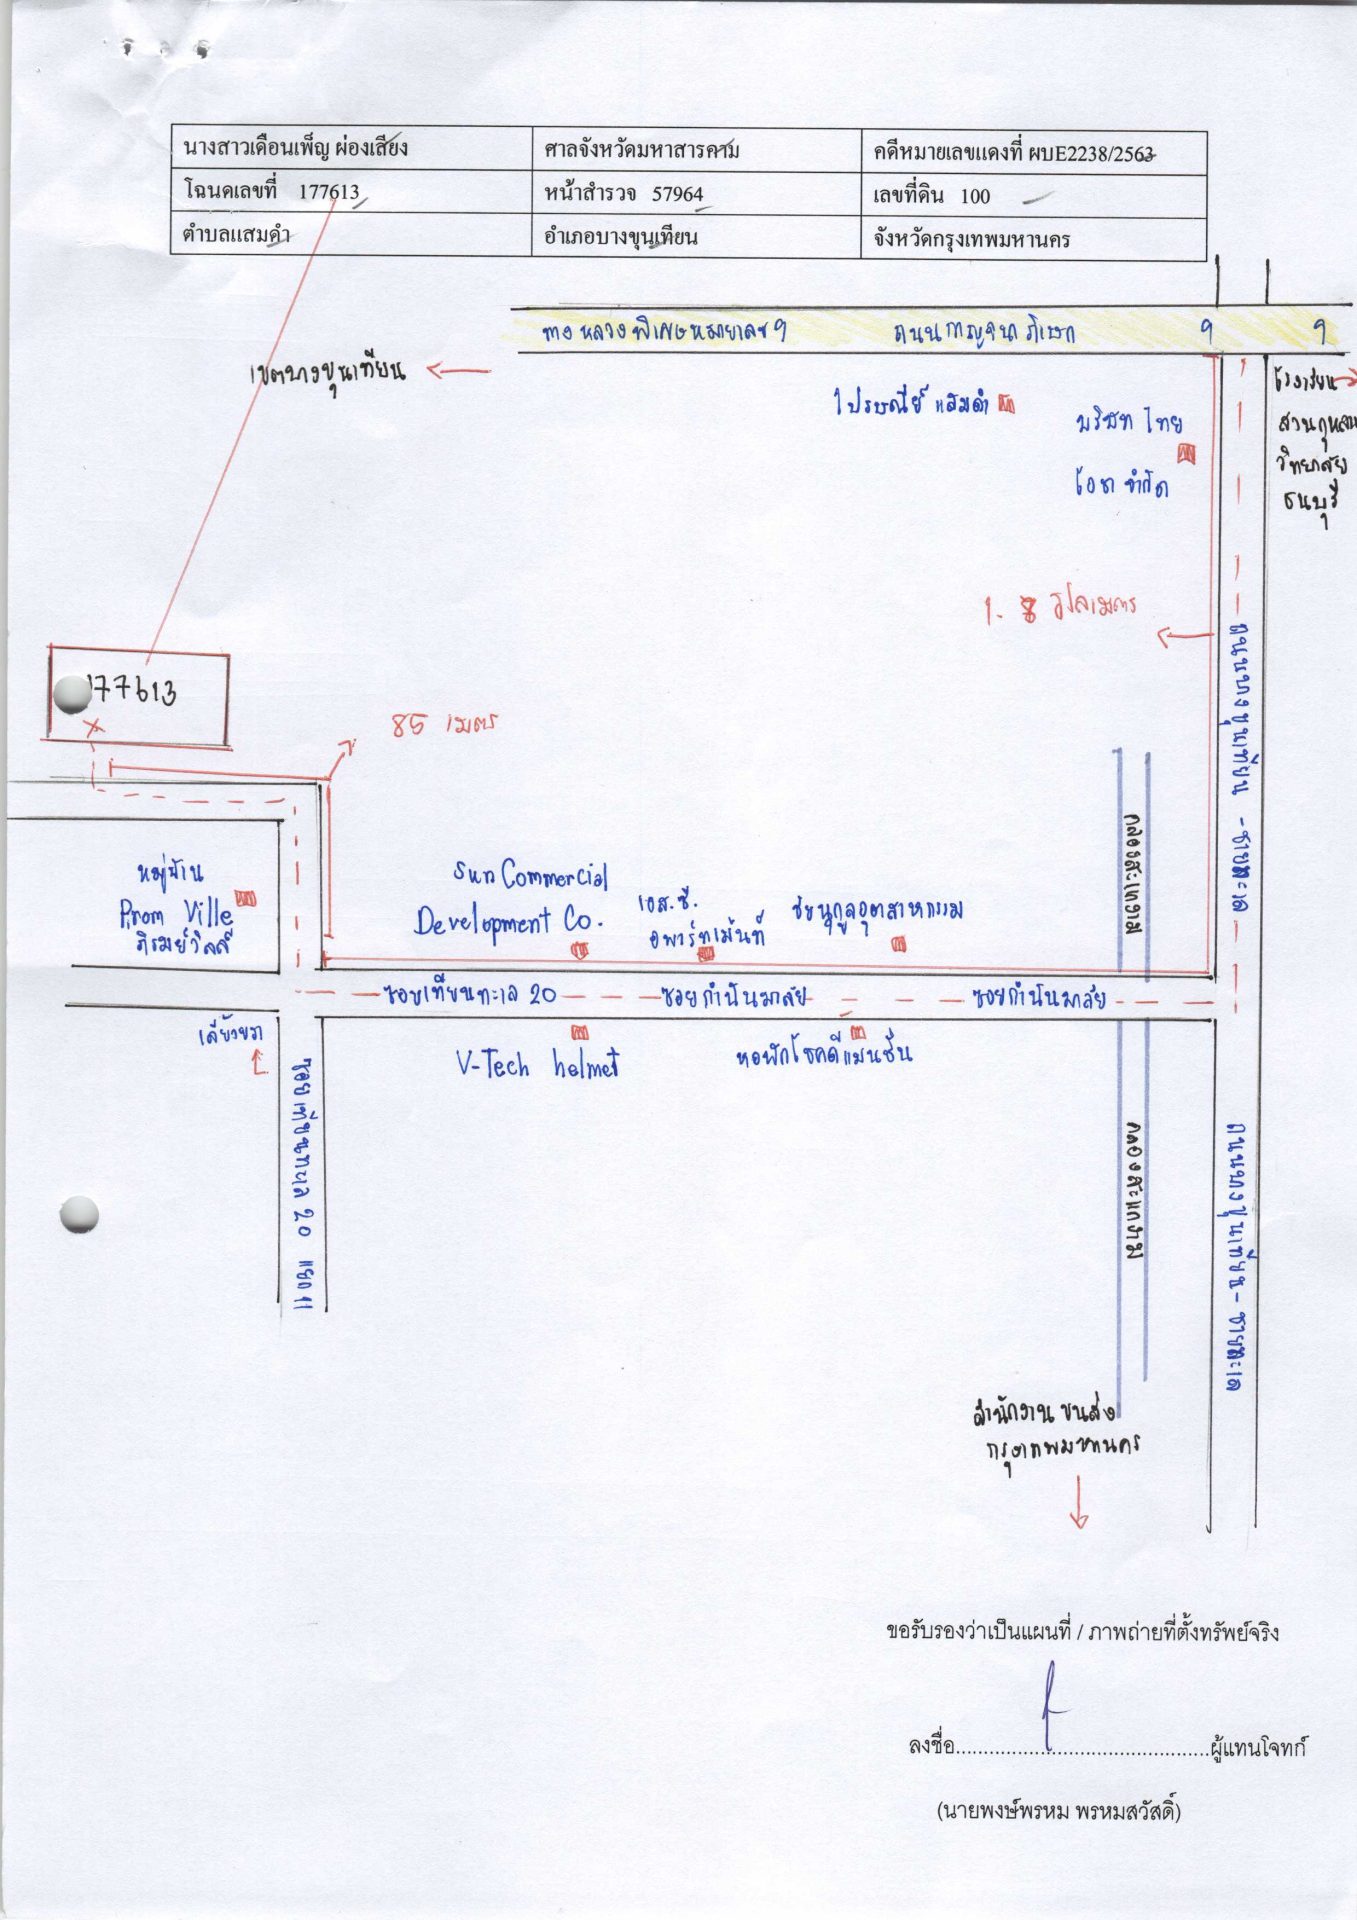 นางสาวเดือนเพ็ญ ผ่องเสียง ศาลจังหวัดมหาสารคาม คดีหมายเลขแดงที่ ผบE2238/2563
โฉนดเลขที่ 177613 หน้าสำรวจ 57964 เลขที่ดิน 100
ตำบลแสมดำ อำเภอบางขุนเทียน จังหวัดกรุงเทพมหานคร
ทางหลวงพิเศษหมายเลข 9 ถนนกาญจนาภิเษก 9 9
เขตบางขุนเทียน
ไปรษณีย์ แสมดำ
บริษัท ไทย
โอซา จำกัด
โรงเรียน
สวนกุหลาบ
วิทยาลัย
ธนบุรี
กิโลเมตร
177613
85 เมตร
ถนนบางขุนเทียน - ชายทะเล
คลองสะแกงาม
หมู่บ้าน
Prom Ville
ภิรมย์วิลล์
Sun Commercial
Development Co.
เอส.ซี.
อพาร์ทเม้นท์
ชัยนุกูลอุตสาหกรรม
ซอยเทียนทะเล 20 ซอยกำนันมาลัย ซอยกำนันมาลัย
เลี้ยวขวา
V-Tech helmet
หอพักโชคดีแมนชั่น
ซอยเทียนทะเล 20 แยก
คลองสะแกงาม
ถนนบางขุนเทียน - ชายทะเล
สำนักงาน ขนส่ง
กรุงเทพมหานคร
ขอรับรองว่าเป็นแผนที่ / ภาพถ่ายที่ตั้งทรัพย์จริง
ลงชื่อ............................................ผู้แทนโจทก์
(นายพงษ์พรหม พรหมสวัสดิ์)